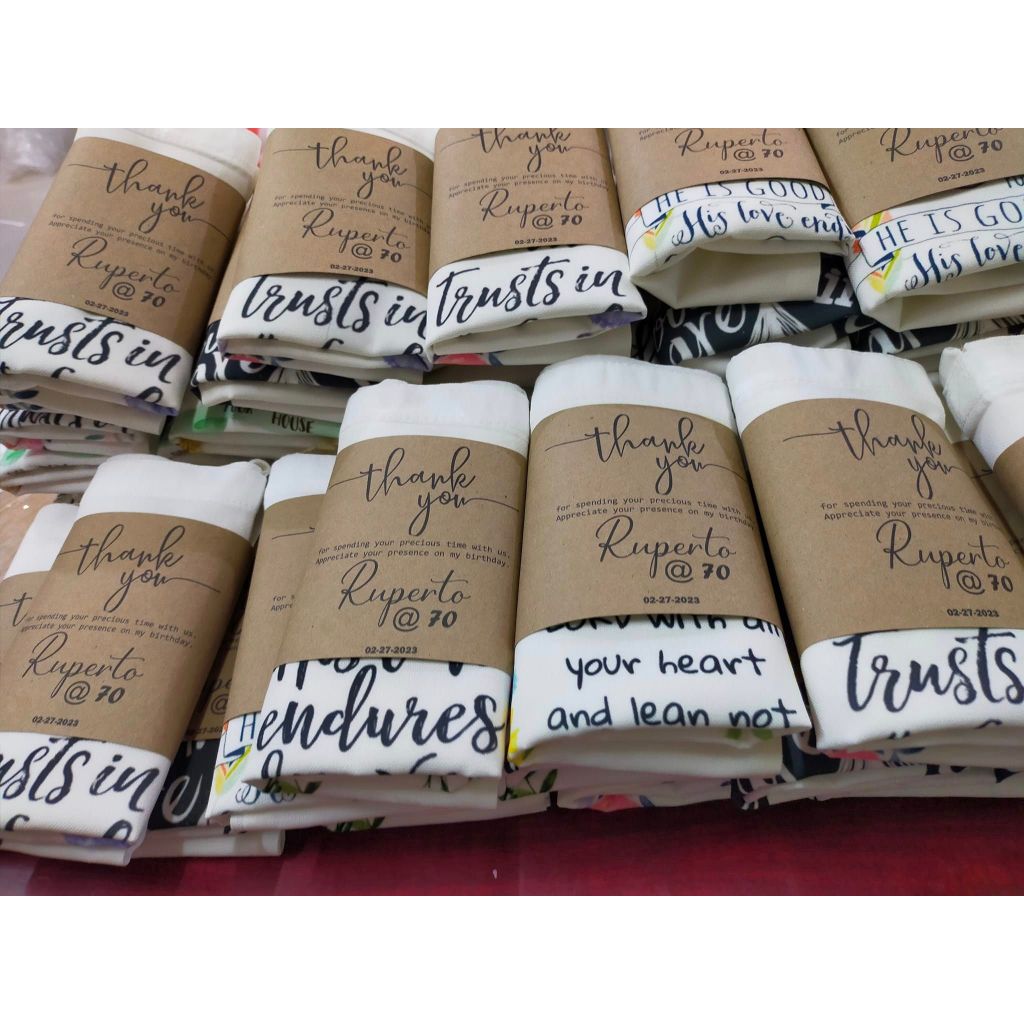 thank
you
for spending your precious time with us.
Appreciate your presence on my birthday.
Ruperto
@ 70
02-27-2023
trusts in
thank
you
for spending your precious time with us.
Appreciate your presence on my birthday.
Ruperto
@ 70
02-27-2023
trusts in
YOUR HOUSE
thank
you
for spending your precious time with us.
Appreciate your presence on my birthday.
Ruperto
@ 70
02-27-2023
trusts in
Ruperto
@ 70
02-27-2023
HE IS GOOD
His love
Ruperto
@ 70
02-27-2023
HE IS
His love
thank
you
for spending your precious time with us.
Appreciate your presence on my birthday.
Ruperto
@ 70
02-27-2023
trusts in
thank
you
for spending your precious time with us.
Appreciate your presence on my birthday.
Ruperto
@ 70
02-27-2023
endures
thank
you
for spending your precious time with us.
Appreciate your presence on my birthday.
Ruperto
@ 70
02-27-2023
with all
your heart
and lean not
thank
you
for spending your precious time with us.
Appreciate your presence on my birthday.
Ruperto
@ 70
02-27-2023
trusts